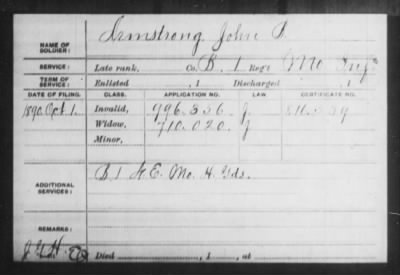 NAME OF SOLDIER: Armstrong, John P.
SERVICE: Late rank, Co. B, 1 Reg't Mo. Inf.
TERM OF SERVICE: Enlisted , 1 Discharged , 1
DATE OF FILING. CLASS. APPLICATION NO. LAW. CERTIFICATE NO.
1890 Oct. 1. Invalid, 996.356 J
Widow, 710.020. J
Minor,
ADDITIONAL SERVICES: B 1 & E. Mo. H. Gds.
REMARKS:
Died , 1 , at